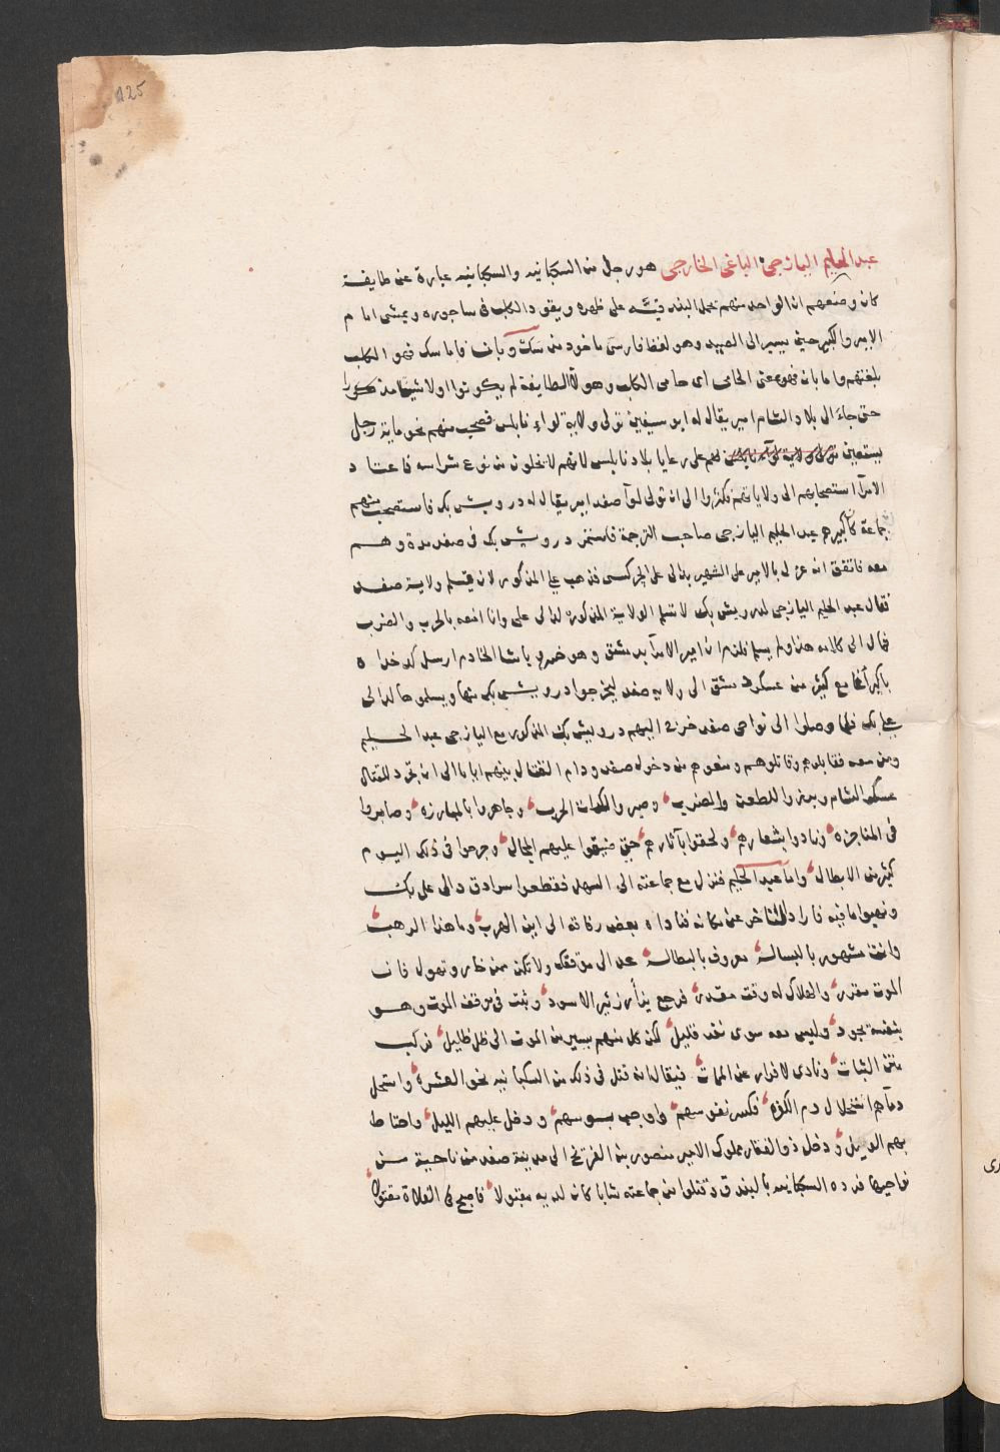 125
عبد الحليم اليازجى الباغى الخارجى هو رجل من السكبانيه والسكبانيه عبارة عن طايفة
كان وضعهم ان الواحد منهم يحمل البندقيه على ظهره ويقود الكلب فى ساجوره ويمشى امام
الامير والكبير حين يسير الى الصيد وهو لفظ فارسى ماخوذ من سك وبان فاما سك فهو الكلب
بلغتهم واما بان فهو بمعنى الحامى اى حامى الكلب وهولآ الطايفة لم يكونوا اولا شيا مذكورا
حتى جاء الى بلاد الشام امير يقال له ابو سيفين تولى ولاية لواء نابلس فصحب منهم نحو ماية رجل
يستعين بهم على رعايا بلاد نابلس لانهم لا يخلون من نوع شراسه فاعتاد
الامرآ استصحابهم الى ولاياتهم فكثروا الى ان تولى لوآ صفد امير يقال له درويش بك فاستصحب منهم
جماعة كبيرهم عبد الحليم اليازجى صاحب الترجمة فاستمر درويش بك فى صفد مدة وهم
معه فاتفق انه عزل بالامير على الشهير بدالى على الجركسى فذهب على المذكور لان يتسلم ولاية صفد
فقال عبد الحليم اليازجى لدرويش بك لا تسلم الولاية المذكورة لدالى على وانا امنعه بالحرب والضرب
فمال الى كلامه هذا ولم يسلم فلزم ان امير الامرآ بدمشق وهو خسرو باشا الخادم ارسل كدخداه
باكير آغا مع كثير من عسكر دمشق الى ولاية صفد ليخرجوا درويش بك منها ويسلموها لدالى
على بك فلما وصلوا الى نواحى صفد خرج اليهم درويش بك المذكور مع اليازجى عبد الحليم
ومن معه فقابلوهم وقاتلوهم ومنعوهم من دخول صفد ودام القتال بينهم اياما الى ان تجرد للقتال
عسكر الشام وبرزوا للطعن والضرب وصبروا الحرب وجاهروا بالمبارزه وصابروا
فى المناجزه ونادوا بشعارهم ولحقوا بآثارهم حتى ضيقوا عليهم المجال وجرحوا فى ذلك اليوم
كثير من الابطال واما عبد الحليم فنزل مع جماعته الى السهل فقطعوا سرادق دالى على بك
ونهبوا ما فيه فاراد التاخر عن مكانه فناداه بعض رفاقه الى اين الهرب وما هذا الرهب
وانت مشهور بالبسالة معروف بالبطالة عد الى موقفك ولا تكن ممن خار وتهول فان
الموت مقرر والهلاك له وقت مقدر فرجع يزأر زئير الاسود وثبت فى موقف الموت وهو
بنفسه يجود وليس معه سوى نفر قليل لكن كل منهم يسير من الموت الى ظل ظليل فركب
متن الثبات ونادى لا فرار عن الممات فيقال انه قتل فى ذلك من السكبانيه نحو العشره واستحل
دمآهم استحلال دم الكفره فكسر نفوسهم واوجب بوسهم ودخل عليهم الليل واحاط
بهم الويل ودخل ذو الفقار مملوك الامير منصور بن الفريخ الى مدينة صفد من ناحية من
نواحيها فرده السكبانيه بالبندق وقتلوا من جماعته شابا كان لديه مقبولا فاصبح فى الفلاة مقتولا